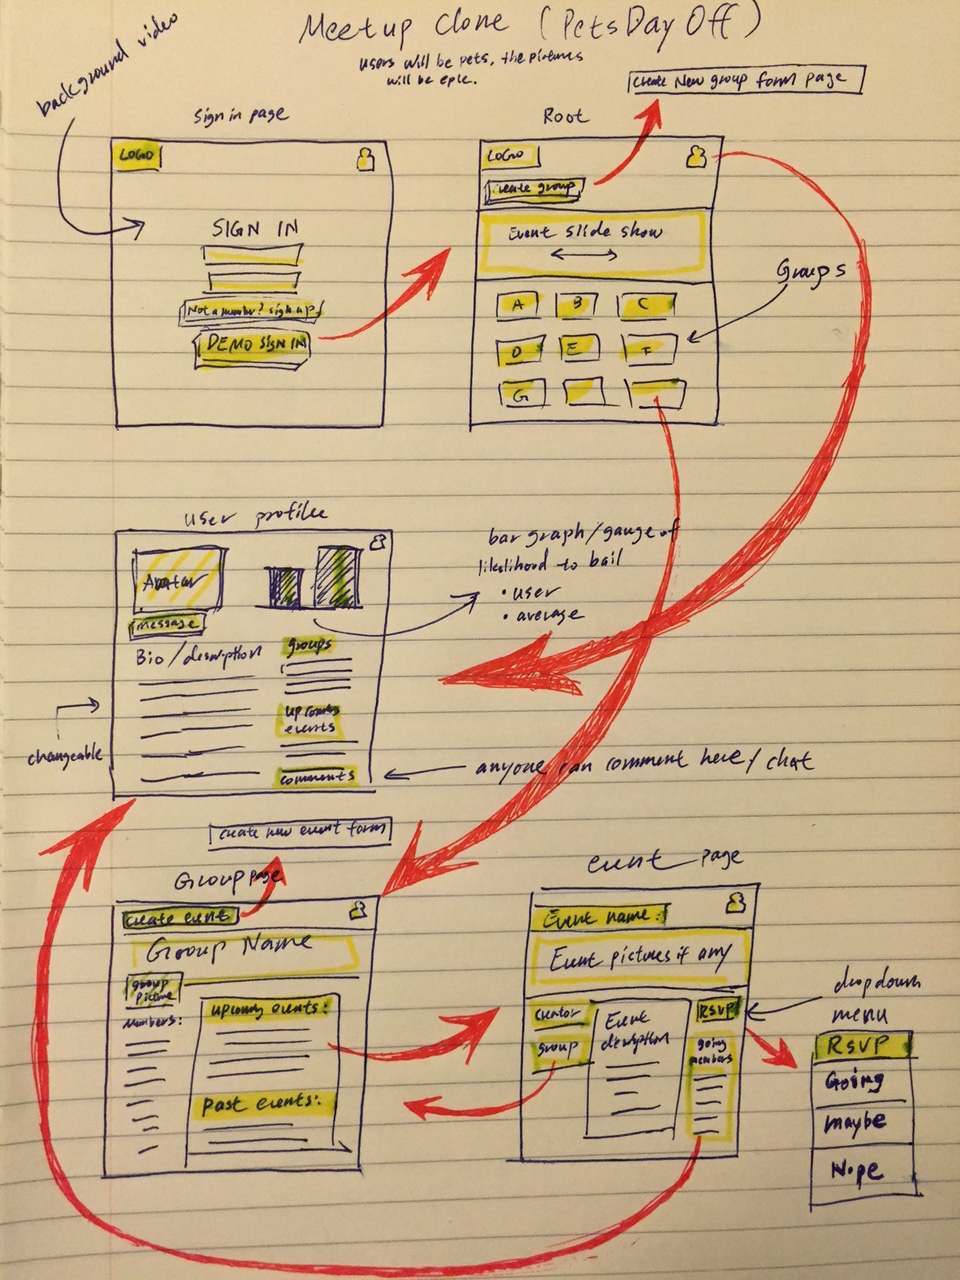 Meetup Clone (PetsDayOff)
users will be pets, the pictures
will be epic.
background video
Create New group form page
Sign in page
Root
LOGO
LOGO
Create group
SIGN IN
Event Slide show
Not a member? sign up!
DEMO SIGN IN
Groups
A B C
D E F
G
User profile
Avatar
message
Bio/description
groups
upcoming
events
comments
bar graph/gauge of
likelihood to bail
• user
• average
changeable
anyone can comment here/chat
Create new event form
Group page
event page
Create event
Group Name
group
picture
Members:
upcoming events:
Past events:
Event name:
Event pictures if any
creator
group
Event
description
RSVP
going
members
dropdown
menu
RSVP
Going
Maybe
Nope